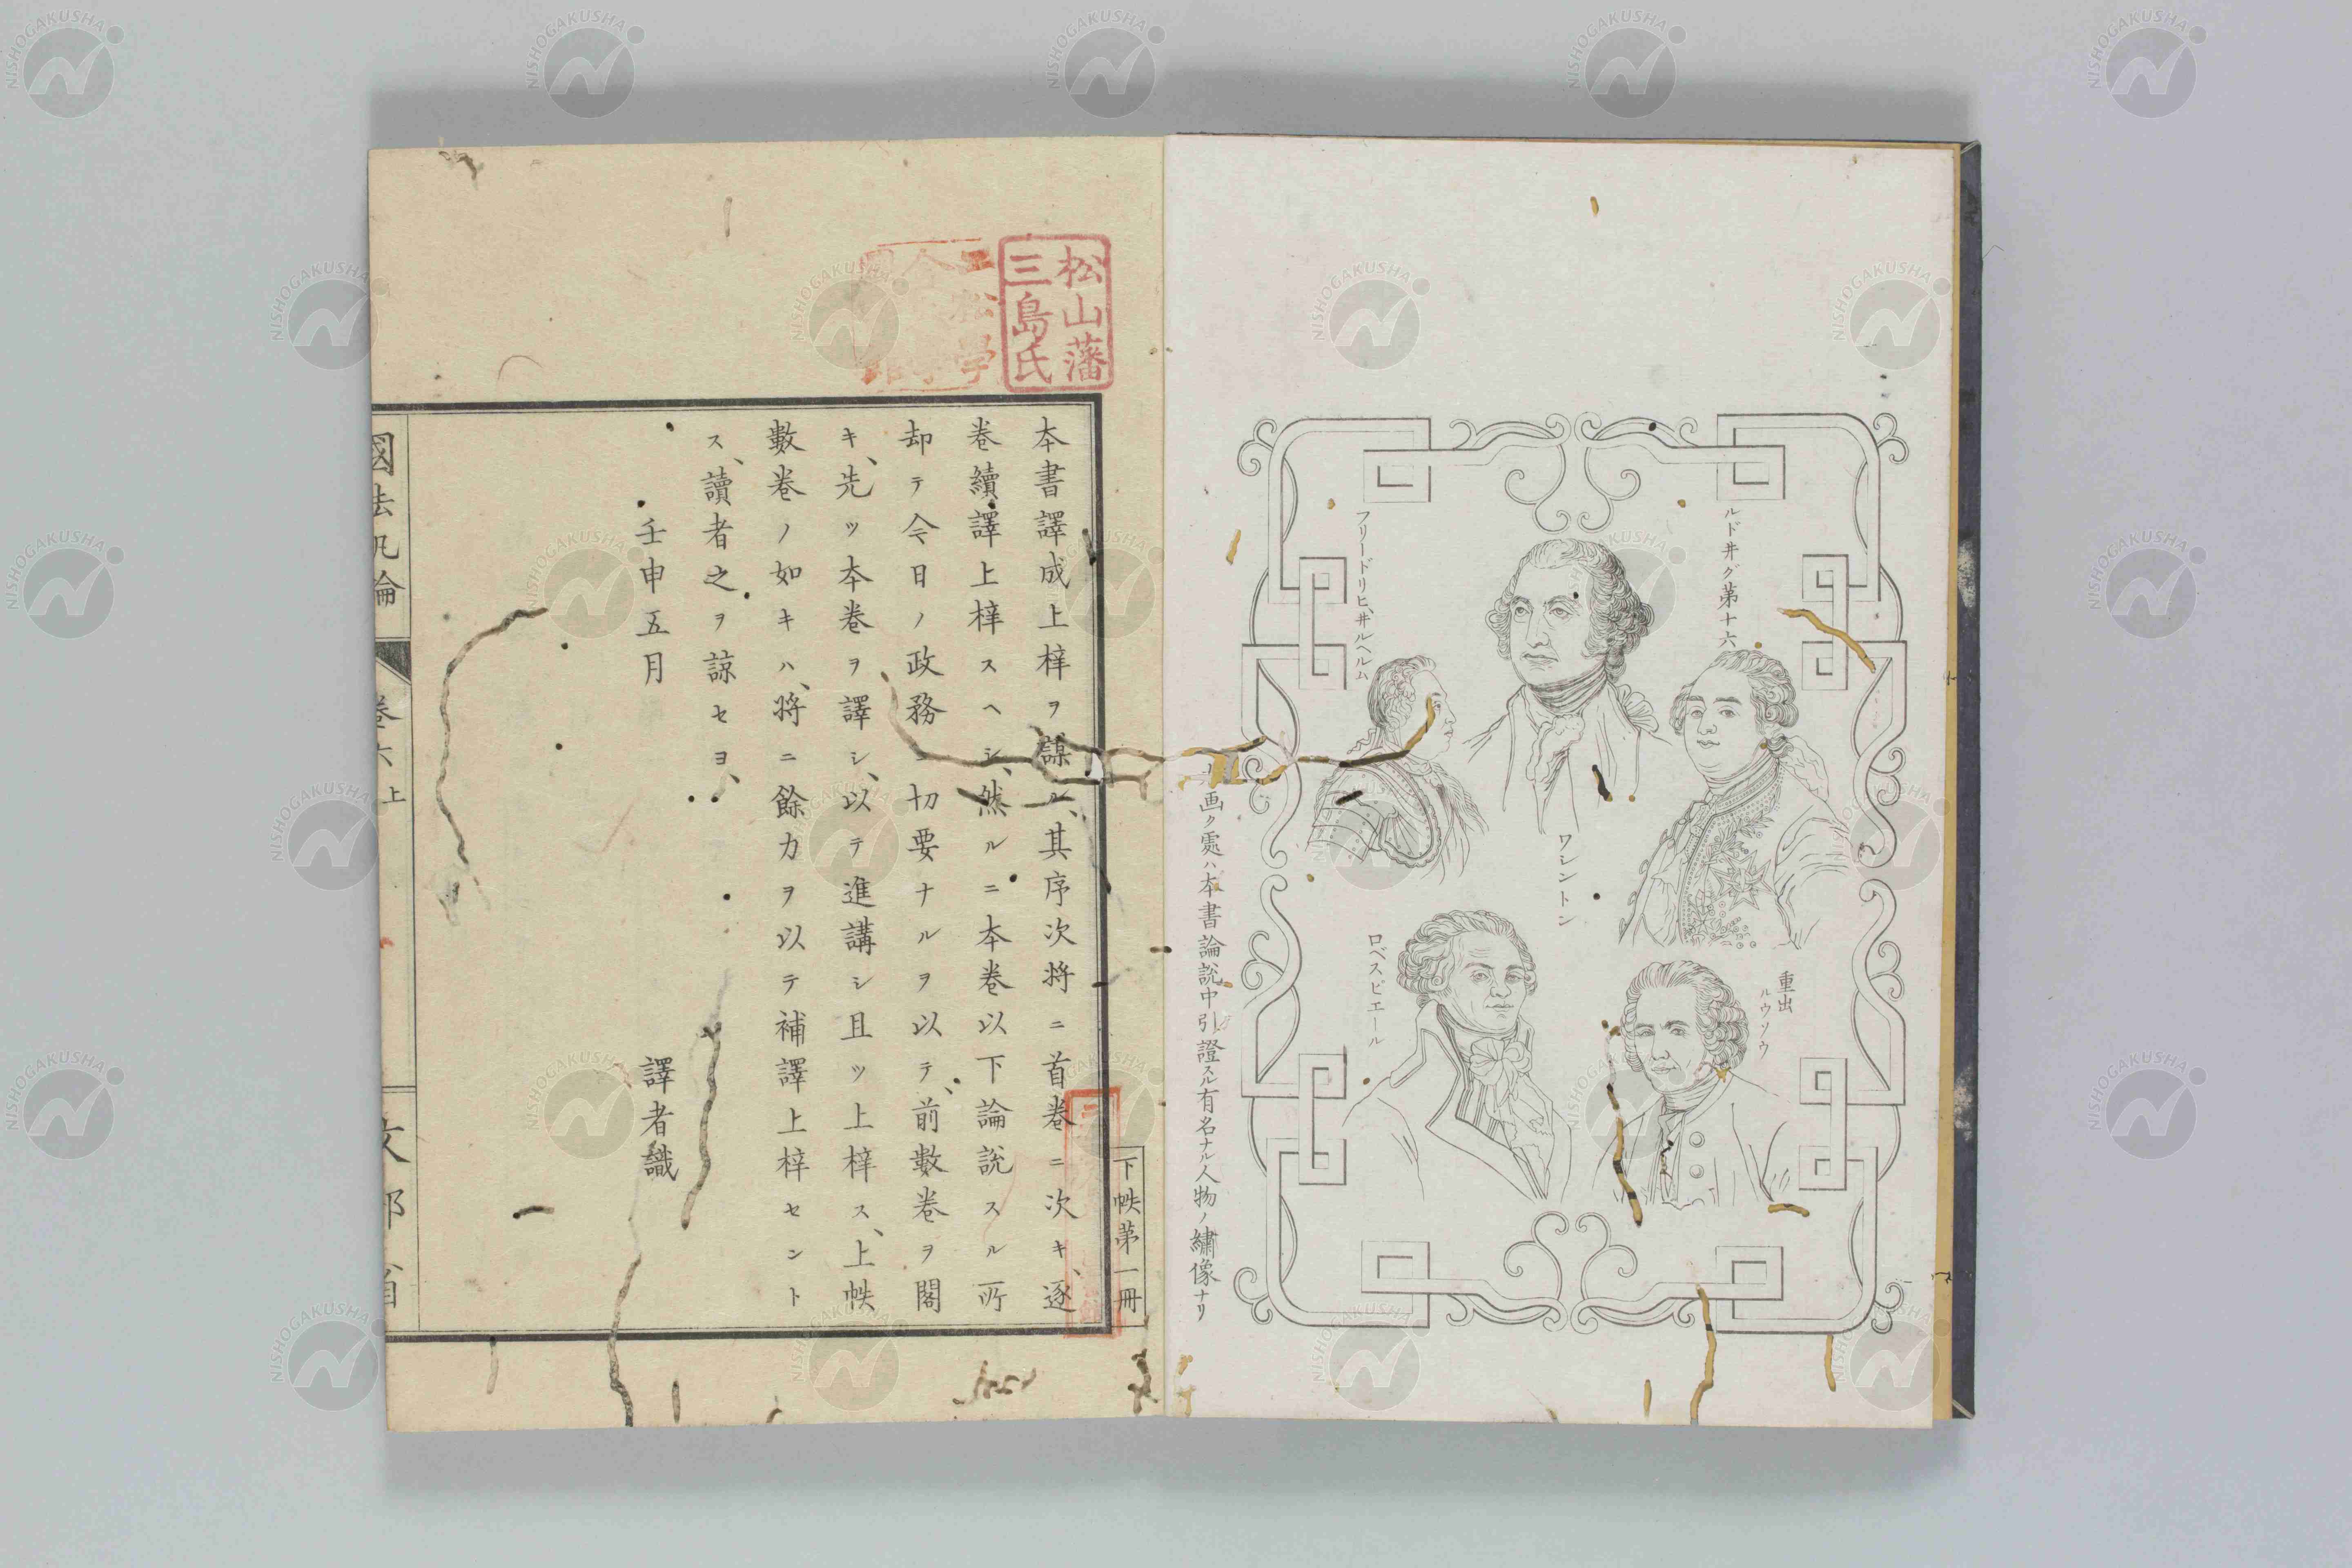 ルド井グ第十六
ワシントン
フリードリヒ、井ルヘルム
重出
ルウソウ
ロベスピエール
画ク處ハ本書論説中引證スル有名ナル人物ノ繡像ナリ
松山藩
三島氏
下帙第一冊
本書譯成上梓ヲ謀ル、其序次將ニ首卷ニ次キ、逐
卷續譯上梓スヘシ、然ルニ本卷以下論説スル所
却テ今日ノ政務ニ切要ナルヲ以テ、前數卷ヲ閣
キ、先ツ本卷ヲ譯シ、以テ進講シ且ツ上梓ス、上帙
數卷ノ如キハ、將ニ餘力ヲ以テ補譯上梓セント
ス、讀者之ヲ諒セヨ、
壬申五月
譯者識
國法汎論
卷六上
文部省
NISHOGAKUSHA